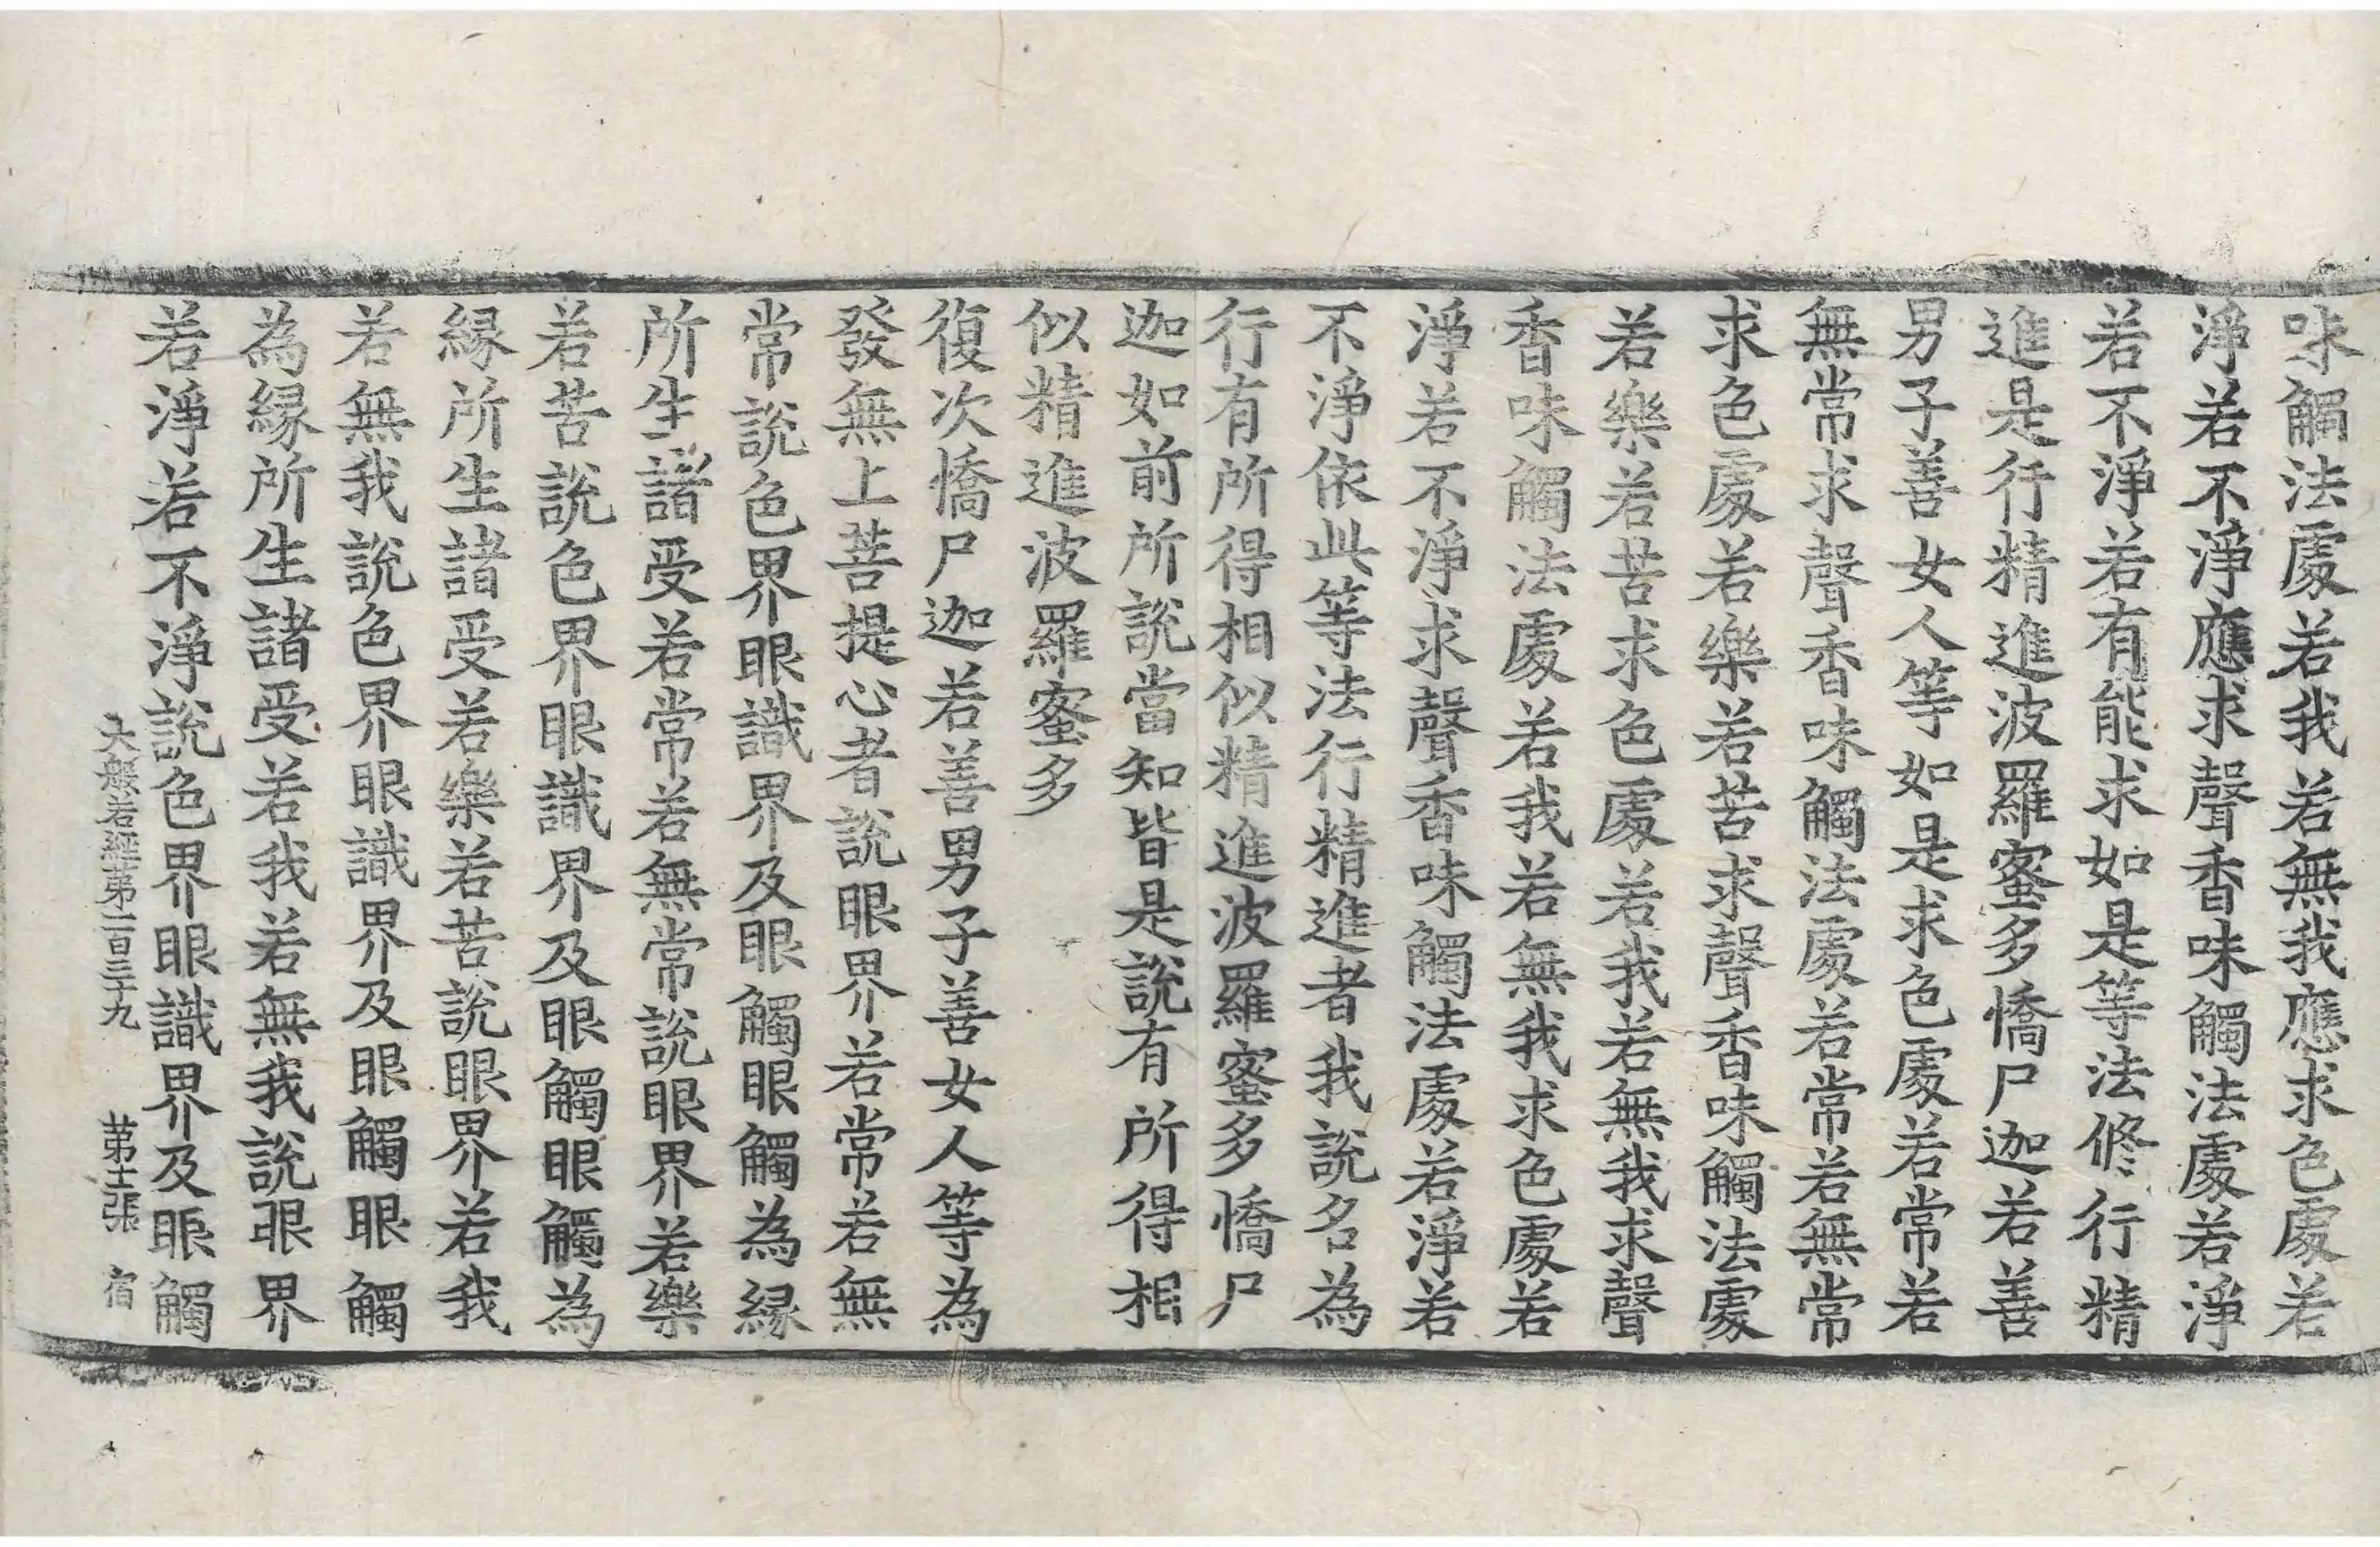 味觸法處若我若無我應求色處若
淨若不淨應求聲香味觸法處若淨
若不淨若有能求如是等法修行精
進是行精進波羅蜜多憍尸迦若善
男子善女人等如是求色處若常若
無常求聲香味觸法處若常若無常
求色處若樂若苦求聲香味觸法處
若樂若苦求色處若我若無我求聲
香味觸法處若我若無我求色處若
淨若不淨求聲香味觸法處若淨若
不淨依此等法行精進者我說名為
行有所得相似精進波羅蜜多憍尸
迦如前所說當知皆是說有所得相
似精進波羅蜜多
復次憍尸迦若善男子善女人等為
發無上菩提心者說眼界若常若無
常說色界眼識界及眼觸眼觸為緣
所生諸受若常若無常說眼界若樂
若苦說色界眼識界及眼觸眼觸為
緣所生諸受若樂若苦說眼界若我
若無我說色界眼識界及眼觸眼觸
為緣所生諸受若我若無我說眼界
若淨若不淨說色界眼識界及眼觸
大般若經第一百三十九 第十一張 宿